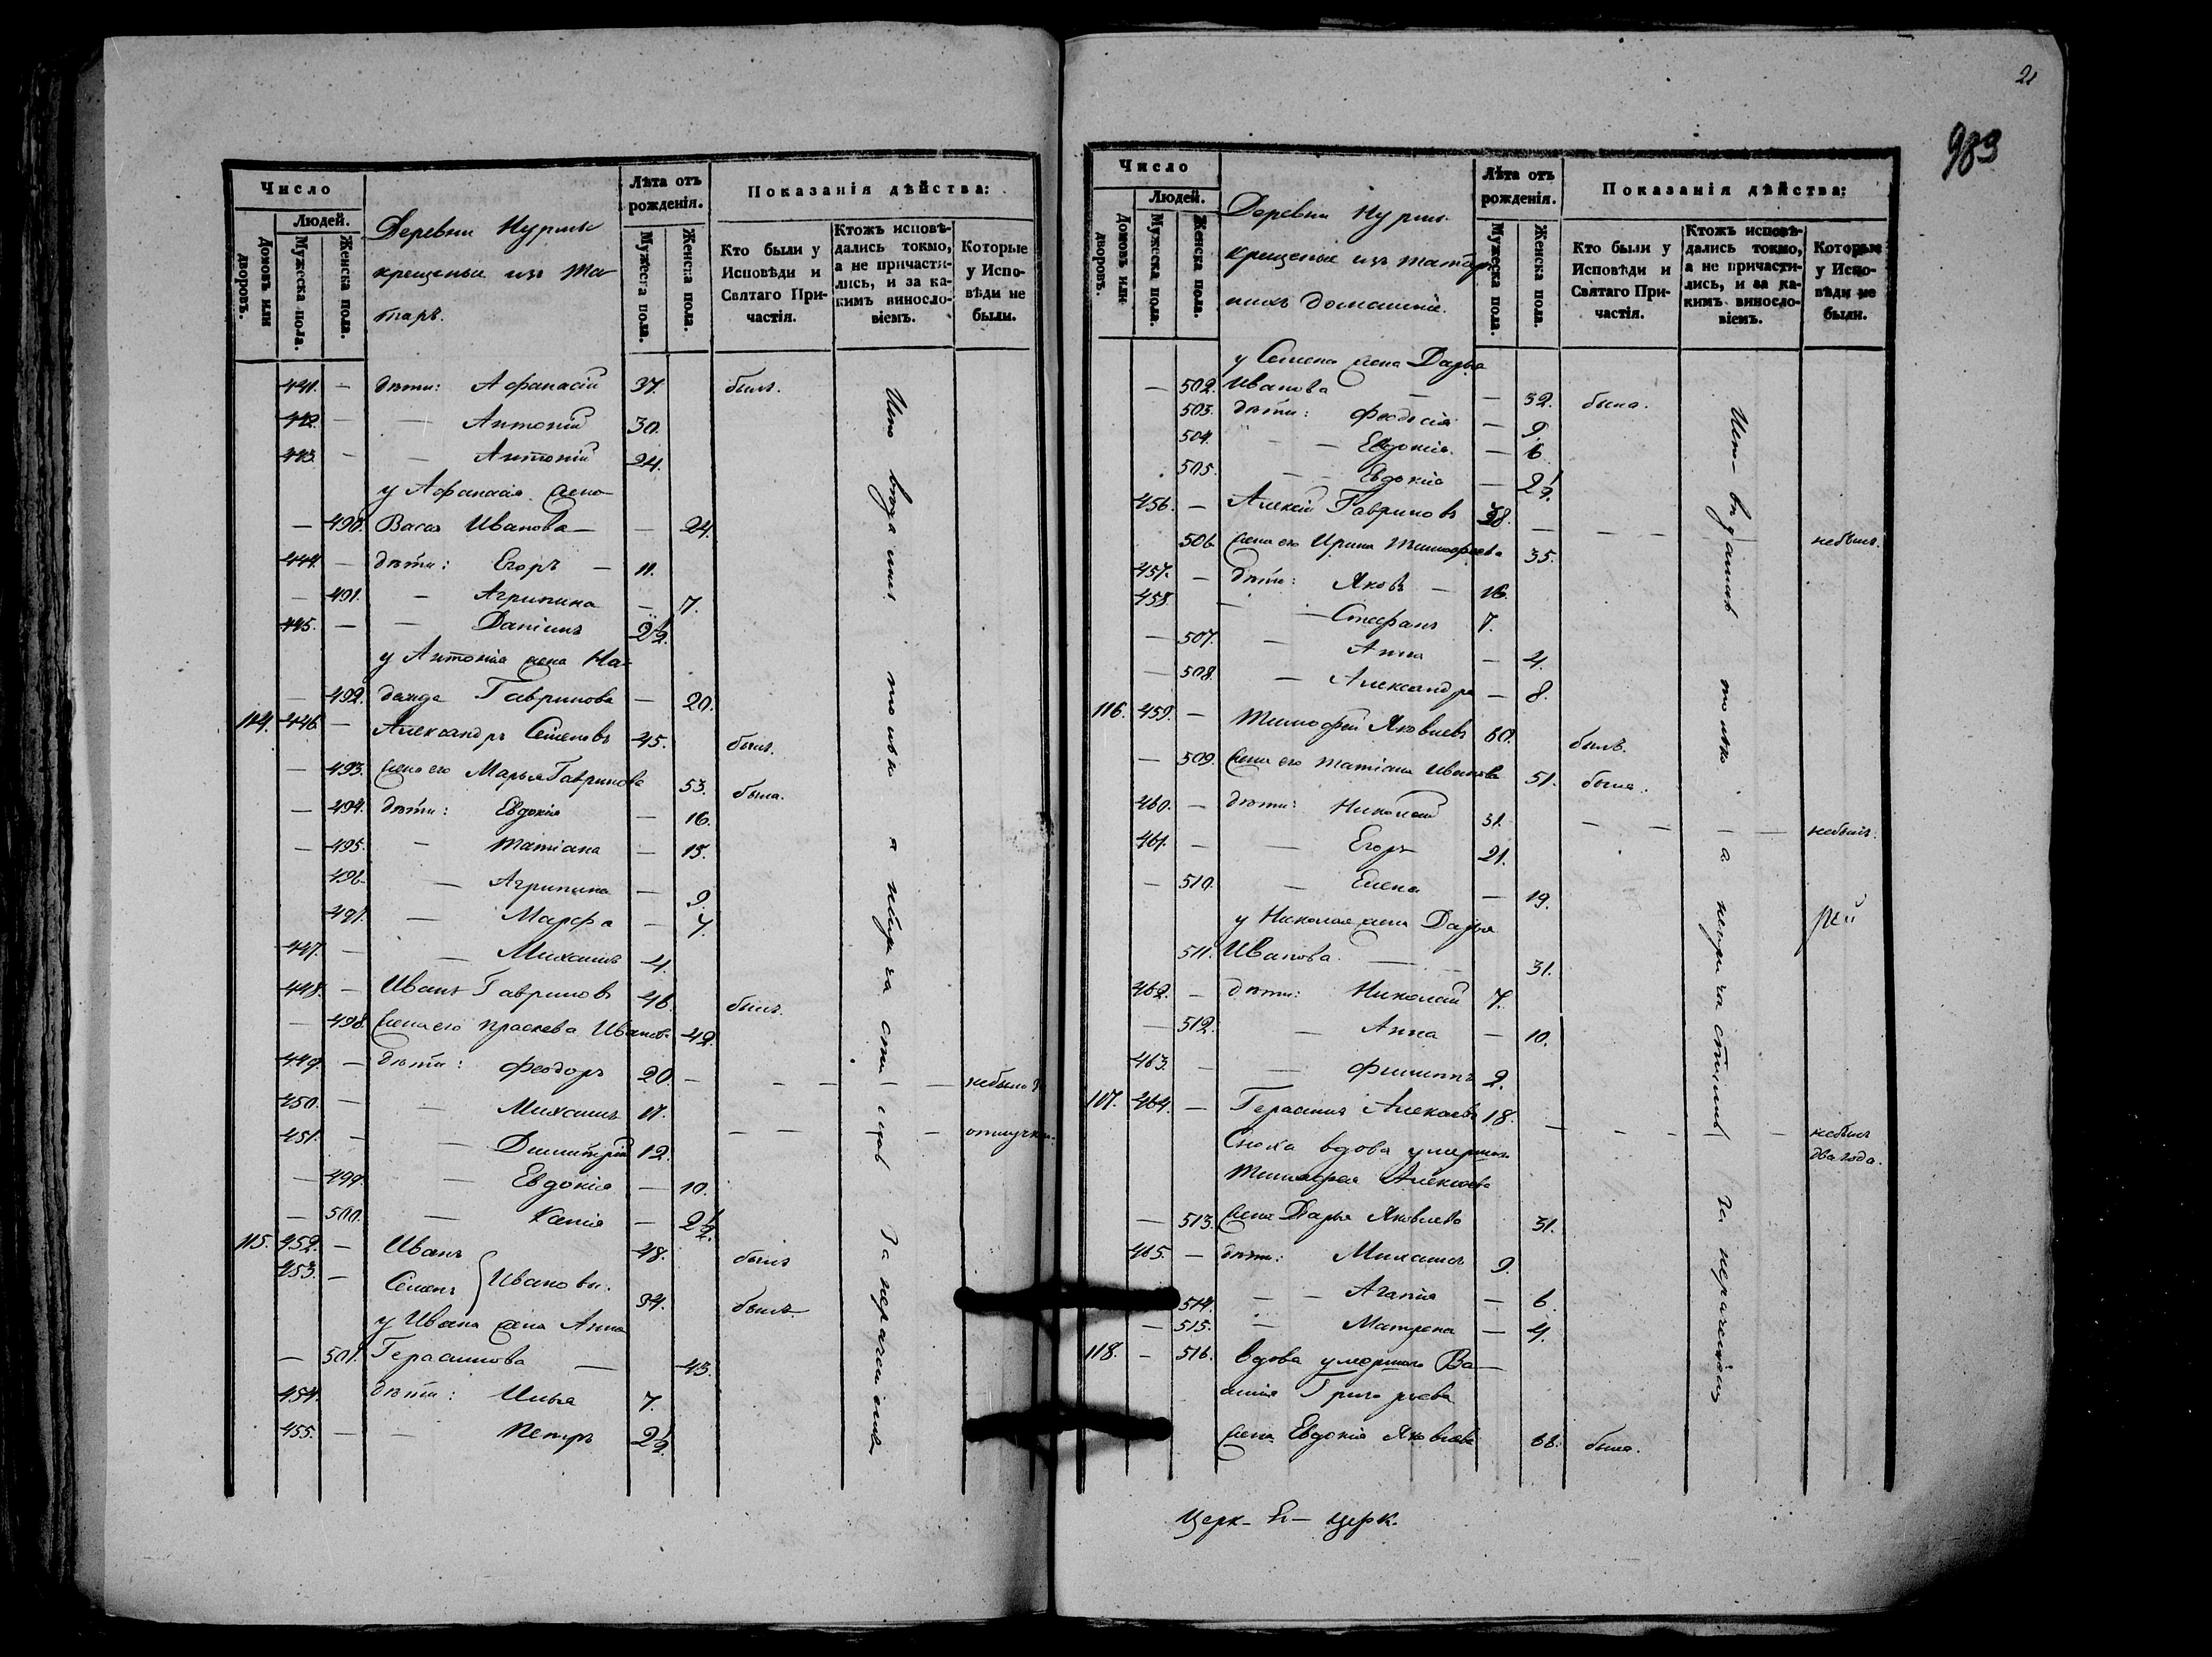 21
983
Число
Людей.
Домовъ или дворовъ.
Мужеска пола.
Женска пола.
Деревни Нурмы
крещеные изъ та-
таръ.
Лѣта отъ рожденія.
Мужеска пола.
Женска пола.
Показанія дѣйства:
Кто были у Исповѣди и Святаго При-частія.
Ктожъ исповѣ-дались токмо, а не причасти-лись, и за ка-кимъ винослo-віемъ.
Которые у Испо-вѣди не были.
441. — дѣти: Афанасій 37. былъ.
442. — — Антоній 30.
443. — — Антоній 24.
у Афанасія жена
— 490. Васса Иванова — — 24.
444. — дѣти: Егоръ — 11.
— 491. — Агрипина — 7.
445. — — Даніилъ 2½.
у Антонія жена На-
— 492. дежда Гаврилова — 20.
114. 446. — Александръ Семеновъ 45. былъ.
— 493. жена его Марья Гаврилова 53. была.
— 494. дѣти: Евдокія — 16.
— 495. — Татіана — 15.
496. — Агрипина — 9.
497. — Марфа — 7.
447. — — Михаилъ 4.
448. — Иванъ Гавриловъ 46. былъ.
— 498. жена его Праскева Иванова 42.
449. — дѣти: Феодоръ 20. — — — — небыло въ
450. — — Михаилъ 17.
451. — — Димитрій 12. — — — — отлучкѣ.
— 499. — Евдокія — 10.
— 500. — Ксенія — 2½.
115. 452. — Иванъ 48. былъ
453. — Семенъ Ивановы. 34. былъ.
у Ивана жена Анна
— 501. Герасимова — 43.
454. дѣти: Илья 7.
455. — — Петръ 2½.
а непричастились за нерадѣніемъ
Число
Людей.
Домовъ или дворовъ.
Мужеска пола.
Женска пола.
Деревни Нурмы
крещеные изъ татаръ
ихъ домашніе.
Лѣта отъ рожденія.
Мужеска пола.
Женска пола.
Показанія дѣйства:
Кто были у Исповѣди и Святаго При-частія.
Ктожъ исповѣ-дались токмо, а не причасти-лись, и за ка-кимъ винослo-віемъ.
Которые у Испо-вѣди не были.
у Семена жена Дарья
— 502. Иванова — — 32. была.
503. дѣти: Феодосія — 9.
504. — — Евдокія — 6.
505. — — Евдокія — 2½.
456. — Алексій Гавриловъ 38. — — — небылъ.
506. жена его Ирина Тимофеева 35.
457. — дѣти: Яковъ — 16.
458. — — Стефанъ 7.
— 507. — Анна — 4.
— 508. — Александра — 8.
116. 459. — Тимофей Яковлевъ 60. былъ.
— 509. жена его Татіана Иванова 51. была.
460. — дѣти: Николай 31. — — — — небылъ.
461. — — Егоръ 21.
— 510. — Елена — 19.
у Николая жена Дарья
511. Иванова. — 31.
462. — дѣти: Николай 7.
— 512. — Анна — 10.
463. — — Филиппъ 2.
117. 464. — Герасимъ Алексѣевъ 18. — — — — небылъ
два года.
Сноха вдова умершаго
Тимофея Алексѣева
— 513. жена Дарья Яковлева 31.
465. — дѣти: Михаилъ 9.
514. — — Агапія — 6.
— 515. — Матрена — 4.
118. — 516. вдова умершаго Ва-
силія Григорьева
жена Евдокія Яковлева 68. была.
а непричастились за нерадѣніемъ
Церк-
церк.